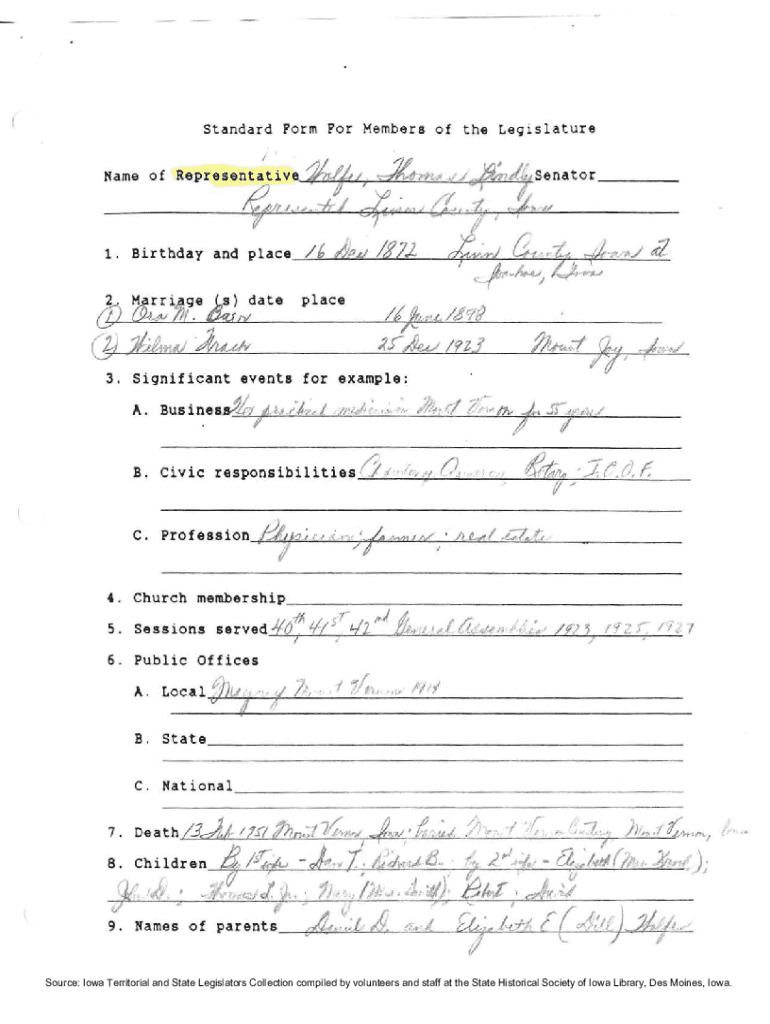 Standard Form For Members of the Legislature
Name of Representative Wolfe, Thomas Lindly Senator
Represented Linn County, Iowa
1. Birthday and place 16 Dec 1872 Linn County, Iowa at
Ivanhoe, Iowa
2. Marriage (s) date place
(1) Ora M. 16 June 1898
(2) Wilma 25 Dec 1923 Mount Joy, Iowa
3. Significant events for example:
A. Business He practiced medicine in Mount Vernon for 55 years
B. Civic responsibilities Rotary; I.O.O.F.
C. Profession Physician; farmer; real estate
4. Church membership
5. Sessions served 40th, 41st, 42nd General Assemblies 1923, 1925, 1927
6. Public Offices
A. Local Mayor of Mount Vernon 1918
B. State
C. National
7. Death 13 Feb 1951 Mount Vernon, Iowa; buried Mount Vernon Cemetery, Mount Vernon, Iowa
8. Children By 1st wife - Dan T.; Richard B.; by 2nd wife - Elizabeth (Mrs. );
John D.; Thomas L. Jr.; Mary (Mrs. Smith); Robert; David
9. Names of parents Daniel D. and Elizabeth E (Dill) Wolfe
Source: Iowa Territorial and State Legislators Collection compiled by volunteers and staff at the State Historical Society of Iowa Library, Des Moines, Iowa.